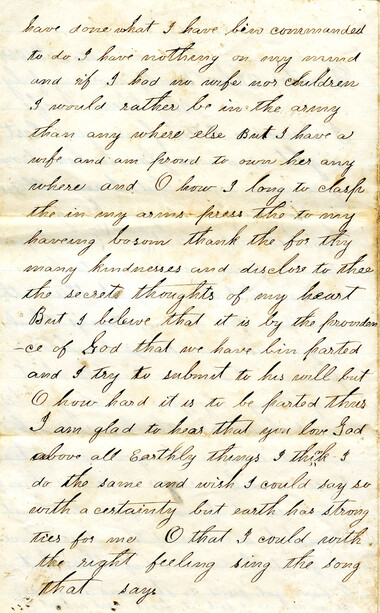 have done what I have bin commanded
to do I have nothing on my mind
and if I had no wife nor children
I would rather be in the army
than any where else But I have a
wife and am proud to own her any
where and O how I long to clasp
the in my arms press the to my
heaving bosom thank the for thy
many kindnesses and disclose to thee
the secret thoughts of my heart
But I beleive that it is by the providen
-ce of God that we have bin parted
and I try to submit to his will but
O how hard it is to be parted thus
I am glad to hear that you love God
above all Earthly things I think I
do the same and wish I could say so
with a certainty but earth has strong
ties for me O that I could with
the right feeling sing the song
that says